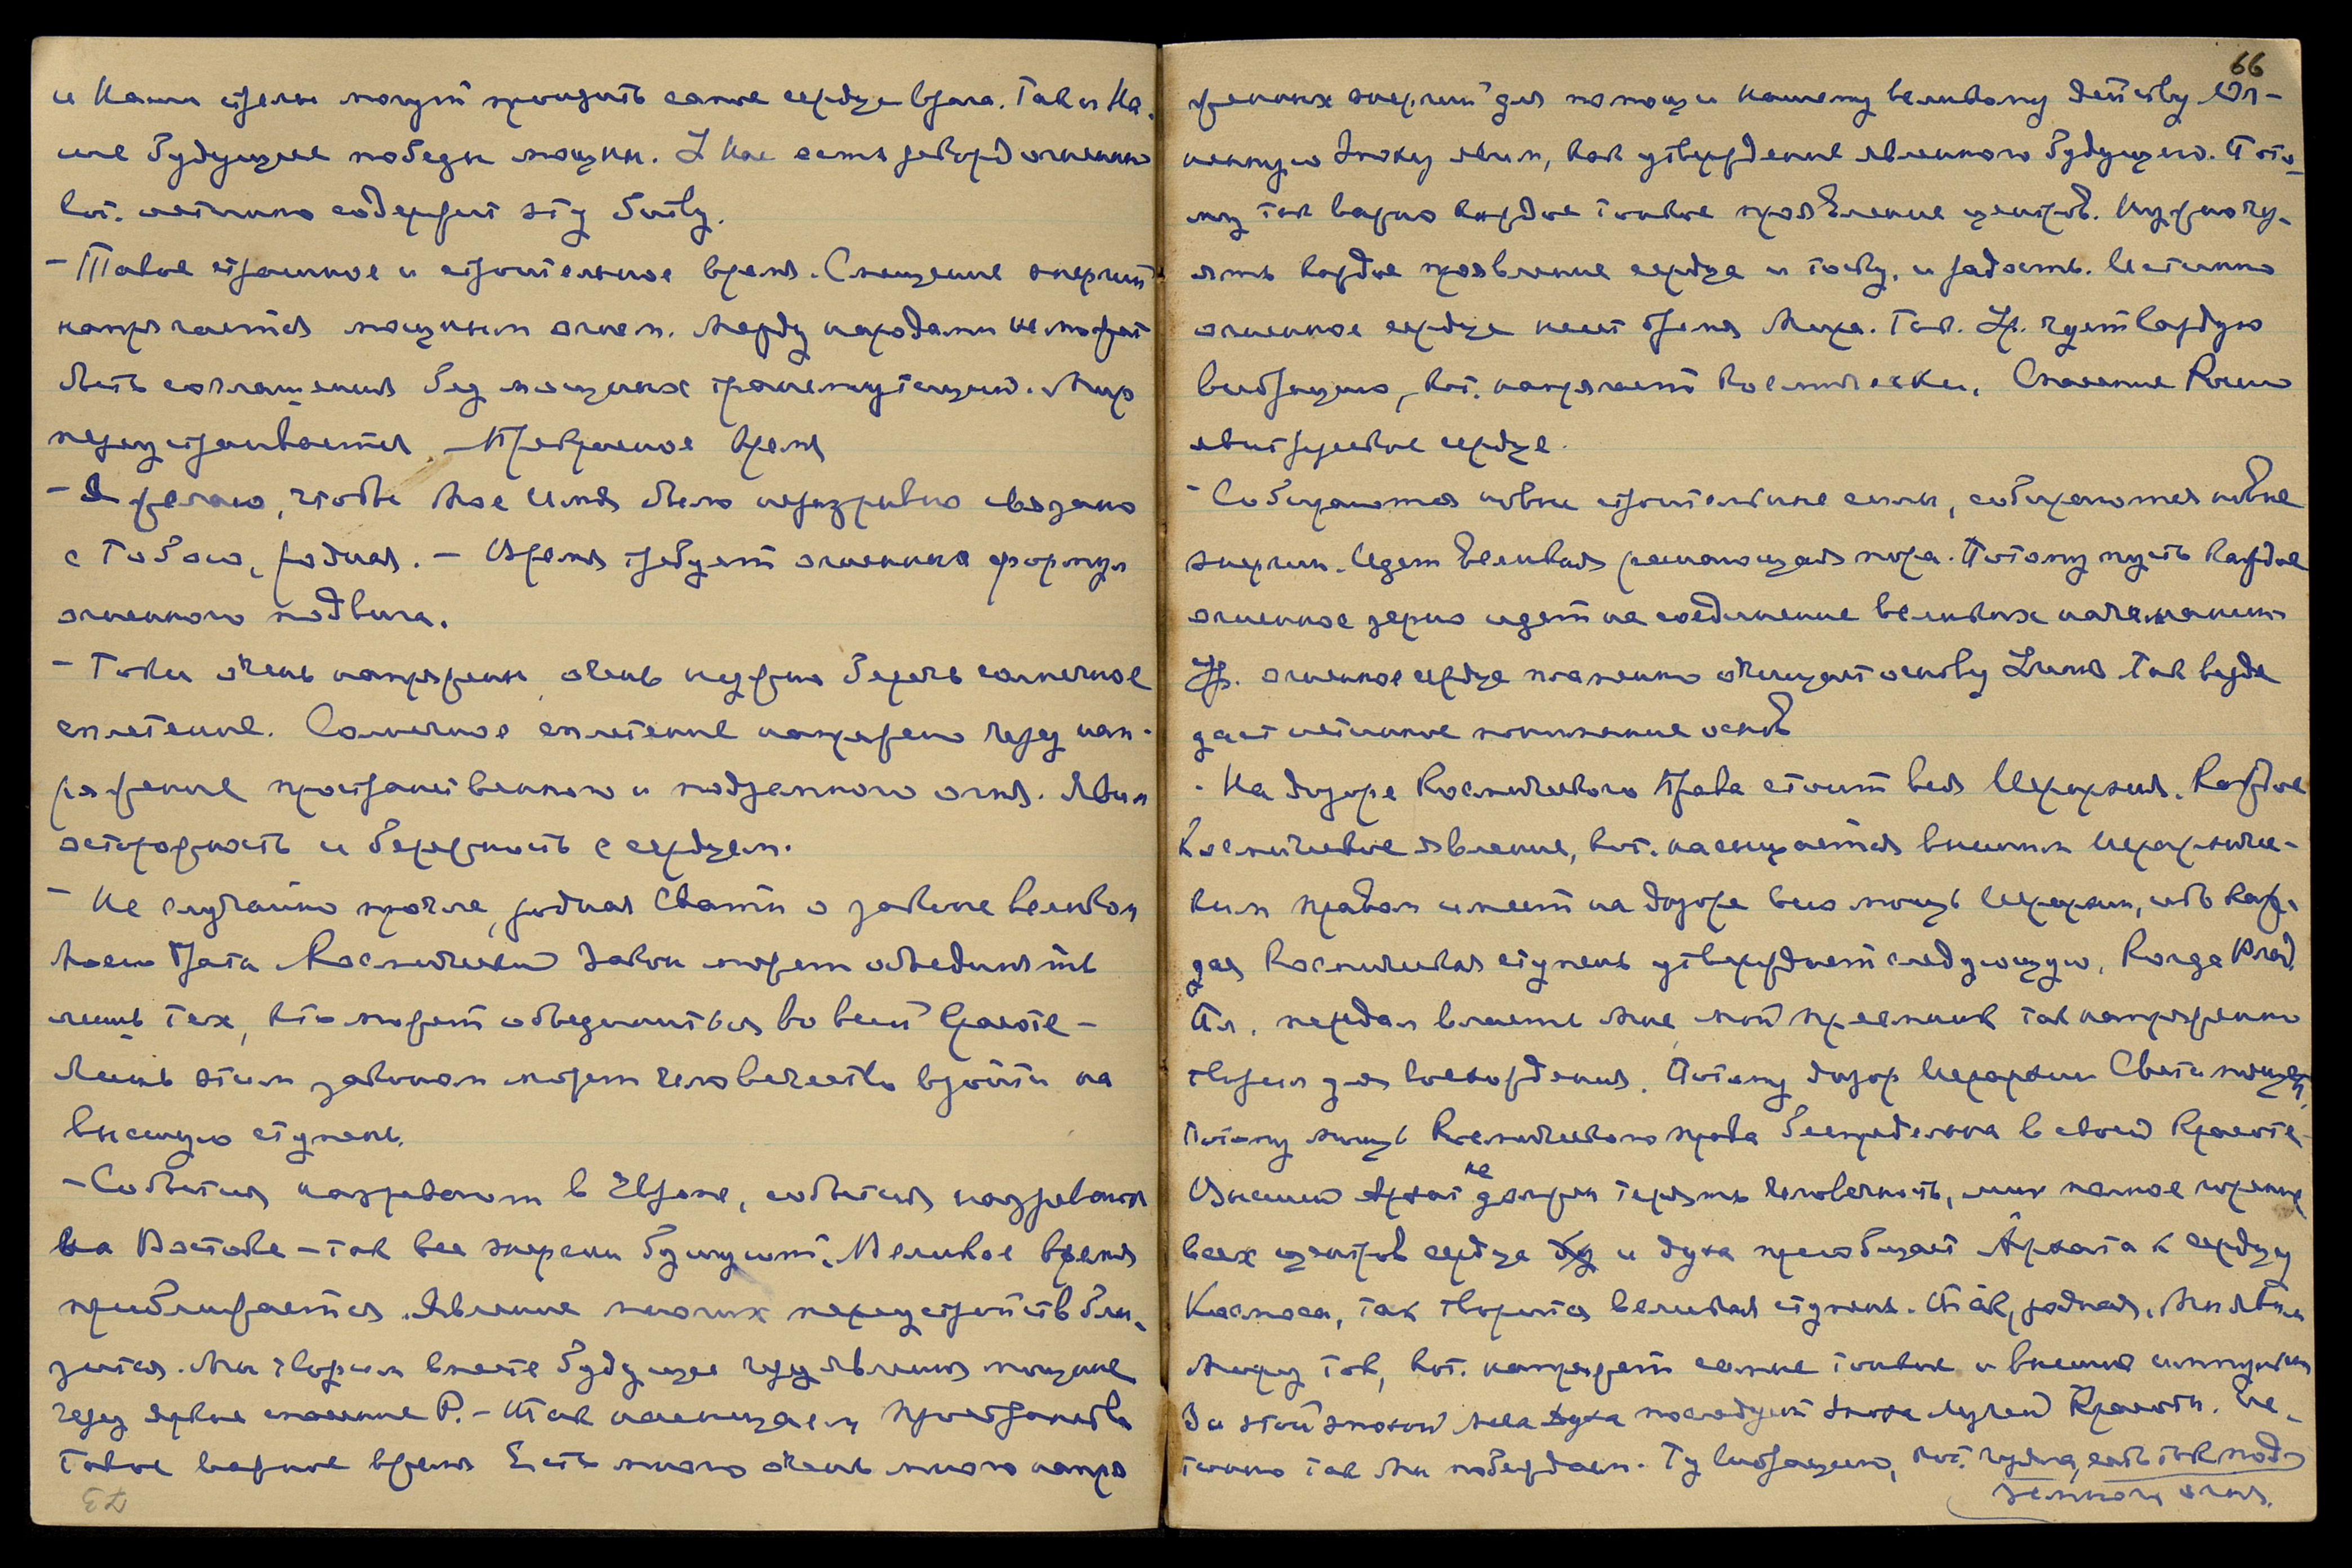 и Наши стрелы могут пронзить самое сердце врага. Так и На-
ше будущее победы мощны. У Нас есть рекорд огненно
кот. истинно содержит эту битву.
– Такое страшное и строительное время. Смещение энергий
напрягается мощным огнем. Между народами не может
быть соглашения без мощных трансмутаций. Мир
переустраивается. – Прекрасное время
– Я желаю, чтобы Мое Имя было неразрывно связано
с Тобою, родная. – Время требует огненных формул
огненного подвига.
– Токи очень напряжены, очень нужно беречь солнечное
сплетение. Солнечное сплетение напряжено через нап-
ряжение пространственного и подземного огня. Явим
осторожность и бережность с сердцем.
– Не случайно прочла, родная Свати о законе великом
Моего Брата Космический Закон может объединять
лишь тех, кто может объединиться во всей Красоте –
Лишь этим законом может человечество взойти на
высшую ступень.
– События назревают в Европе, события назревают
на Востоке – так все энергии бушуют. Великое время
приближается. Явление многих переустройств бли-
зится. Мы творим вместе будущее через явления мощные
через яркие спасение Р. – Так насыщаем пространство
Такое важное время Есть много очень много напря
73
66
женных энергий для помощи нашему великому действу. Ог-
ненную Эпоху явим, как утверждение явленного будущего. Пото-
му так важно каждое тонкое проявление центров. Нужно чу-
ять каждое проявление сердца и тоску, и радость. Истинно
огненное сердце несет бремя Мира. Так Ур. чует каждую
вибрацию, кот. напрягает космически. Спасение России
явит русское сердце.
– Собираются новые строительные силы, собираются новые
энергии. Идет великая решающая пора. Потому пусть каждое
огненное зерно идет на соединение великих начинаний
Ур. огненное сердце пламенно очищает основу Учения так везде
даст истинное понимание основ
– На дозоре Космического Права стоит вся Иерархия. Каждое
Космическое явление, кот. насыщается высшим Иерархичес-
ким правом имеет на дозоре всю мощь Иерархии, ибо каж-
дая Космическая ступень утверждает следующую. Когда Влад.
Ал. передал власть Мне, мой преемник так напряженно
творил для восхождения. Потому дозор Иерархии Света мощен,
потому мощь Космического права беспредельна в своей Красоте –
Высший Архат не должен терять человечность, лишь полное горение
всех центров сердца и духа приобщает Архата к сердцу
Космоса, так творится великая ступень. Так, родная, Мы явим
Миру ток, кот. напряжет самые тонкие и высшие импульсы
За этой эпохой духа последует эпоха лучей Красоты. Ис-
тинно так Мы побеждаем. Ту вибрацию, кот. чуяла, есть ток под-
земного огня.